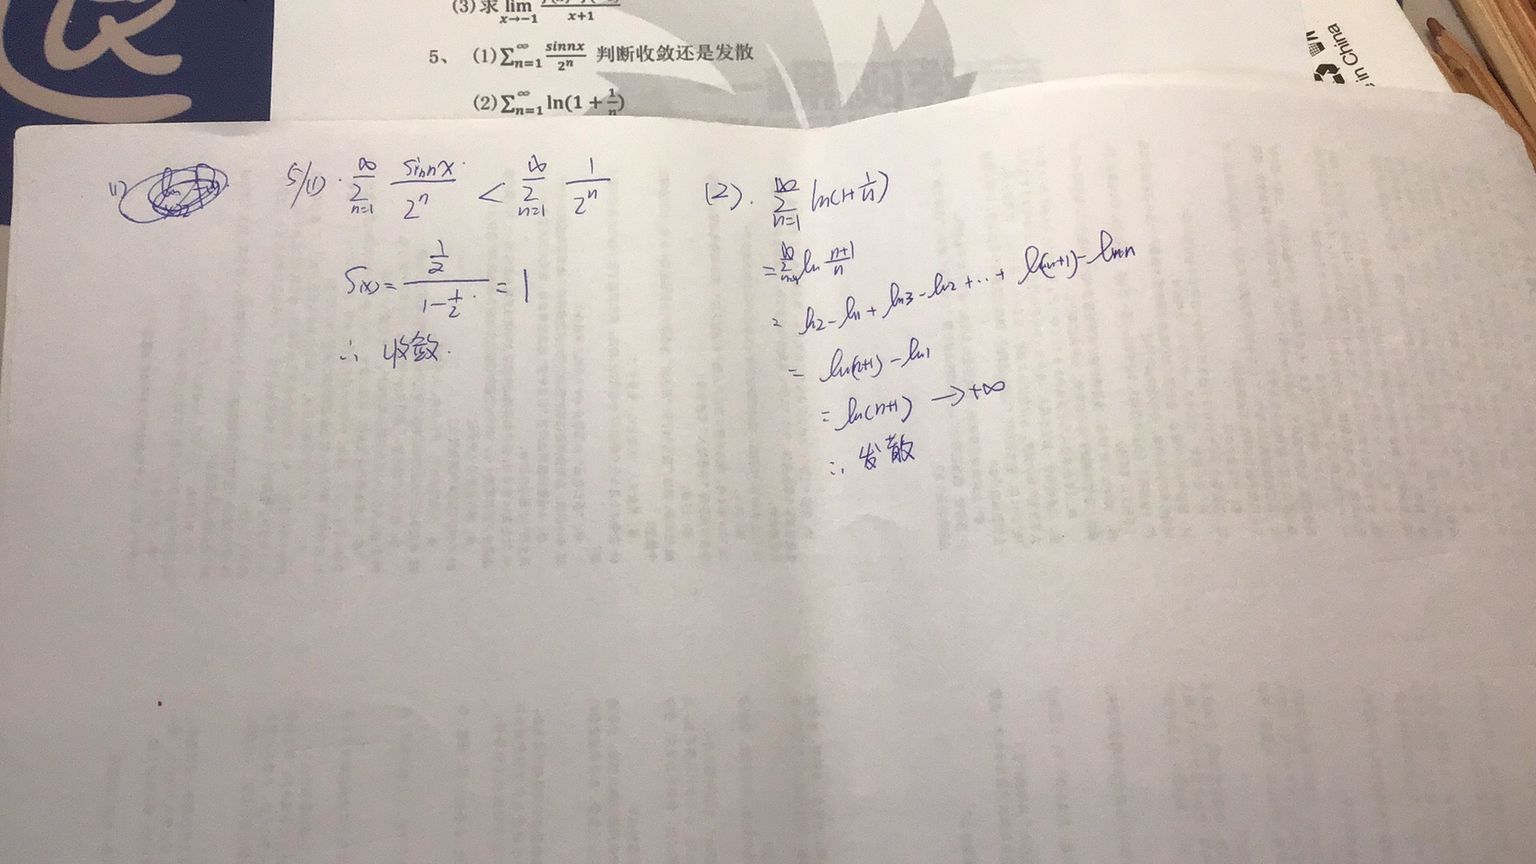 (3)求 lim x→-1 x+1
5、 (1)∑_{n=1}^{∞} sinnx/2^n 判断收敛还是发散
(2)∑_{n=1}^{∞} ln(1+1/n)
in China
(1)
5/(1). ∑_{n=1}^{∞} sinnx/2^n < ∑_{n=1}^{∞} 1/2^n
S(x)= (1/2)/(1-1/2) = 1
∴ 收敛.
(2). ∑_{n=1}^{∞} ln(1+1/n)
= ∑_{n=1}^{∞} ln (n+1)/n
= ln2-ln1+ln3-ln2+...+ ln(n+1)-lnn
= ln(n+1)-ln1
= ln(n+1) →+∞
∴ 发散